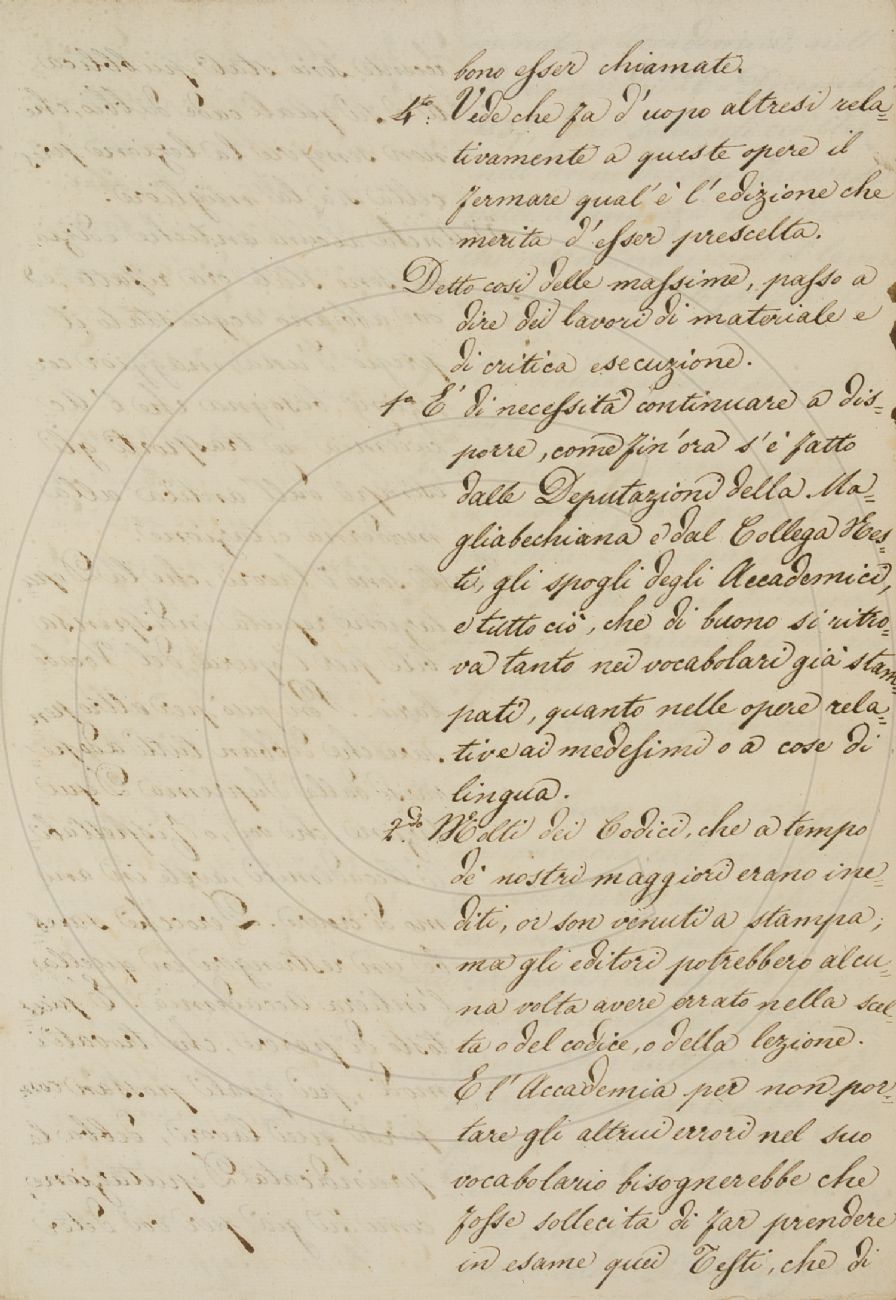 bono esser chiamate.
4.to Vede che fa d'uopo altresì rela=
tivamente a queste opere il
fermare qual'è l'edizione che
merita d'esser prescelta.
Detto così delle massime, passo a
dire dei lavori di materiale e
di critica esecuzione.
1.o È di necessità continuare a dis=
porre, come fin'ora s'è fatto
dalle Deputazioni della Ma=
gliabechiana e dal Collega Res=
ti, gli spogli degli Accademici,
e tutto ciò, che di buono si ritro=
va tanto nei vocabolari già stam=
pati, quanto nelle opere rela=
tive ai medesimi o a cose di
lingua.
2.do Molti dei Codici, che a tempo
de' nostri maggiori erano ine=
diti, or son venuti a stampa;
ma gli editori potrebbero alcu=
na volta avere errato nella scel=
ta o del codice, o della lezione.
E l'Accademia per non por=
tare gli altrui errori nel suo
vocabolario bisognerebbe che
fosse sollecita di far prendere
in esame quei Testi, che di